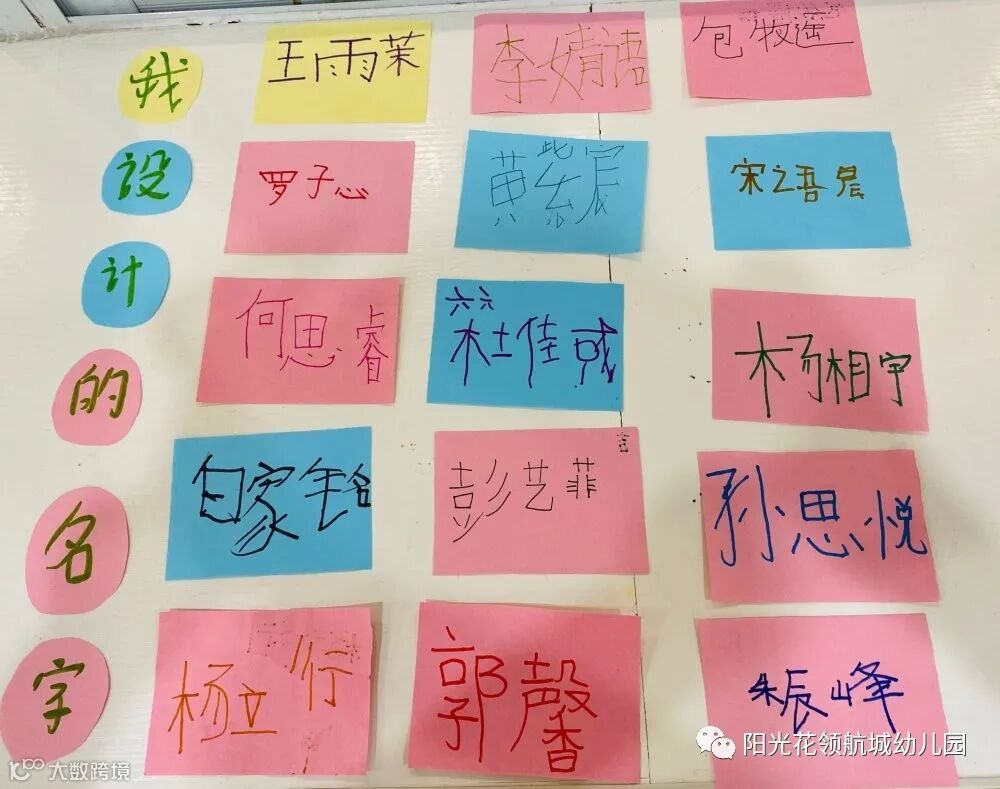 我设计的名字
王雨茉
李婧语
包牧遥
罗子心
黄紫宸
宋之吾晨
何思睿
杜佳
杨相宇
白家铭
彭艺菲
孙思悦
杨立行
郭馨
朱振峰
阳光花领航城幼儿园
大数跨境